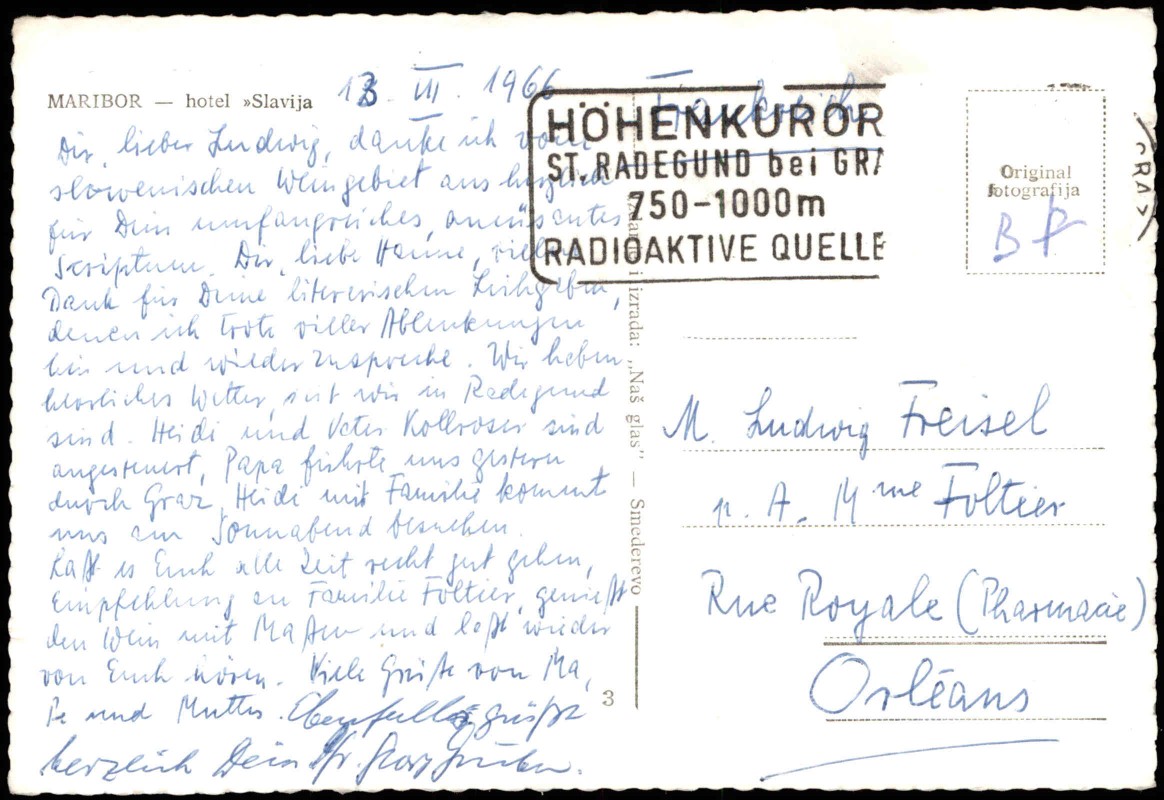 MARIBOR — hotel »Slavija
13. III. 1966
Dir, lieber Ludwig, danke ich vom
slowenischen Weingebiet aus herzlich
für Dein umfangreiches, amüsantes
Scriptum. Dir, liebe Hanne, vielen
Dank für Deine literarischen Leihgaben,
denen ich trotz vieler Ablenkungen
hin und wieder zuspreche. Wir haben
herrliches Wetter, seit wir in Radegund
sind. Heidi und Vater Kollroser sind
angesteuert, Papa führte uns gestern
durch Graz, Heidi mit Familie kommt
uns am Sonnabend besuchen.
Laßt es Euch alle Zeit recht gut gehen,
Empfehlung an Familie Foltier, genießt
den Wein mit Maßen und laßt wieder
von Euch hören. Viele Grüße von Ma,
Pa und Mutter. Ebenfalls grüßt
herzlich Dein
Frankreich
HÖHENKUROR
ST. RADEGUND bei GRA
750-1000m
RADIOAKTIVE QUELLE
GRAZ
Original
fotografija
i izrada: „Naš glas" — Smederevo
M. Ludwig Freisel
p. A. Mme Foltier
Rue Royale (Pharmacie)
Orléans
3